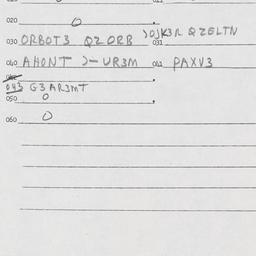 020 O
030 ORBOT3 QZORB >OJK3R QZELTN
031
040 AHONT >-UR3M 041 PAXV3
043 G3AR3MT
050 O
060 O